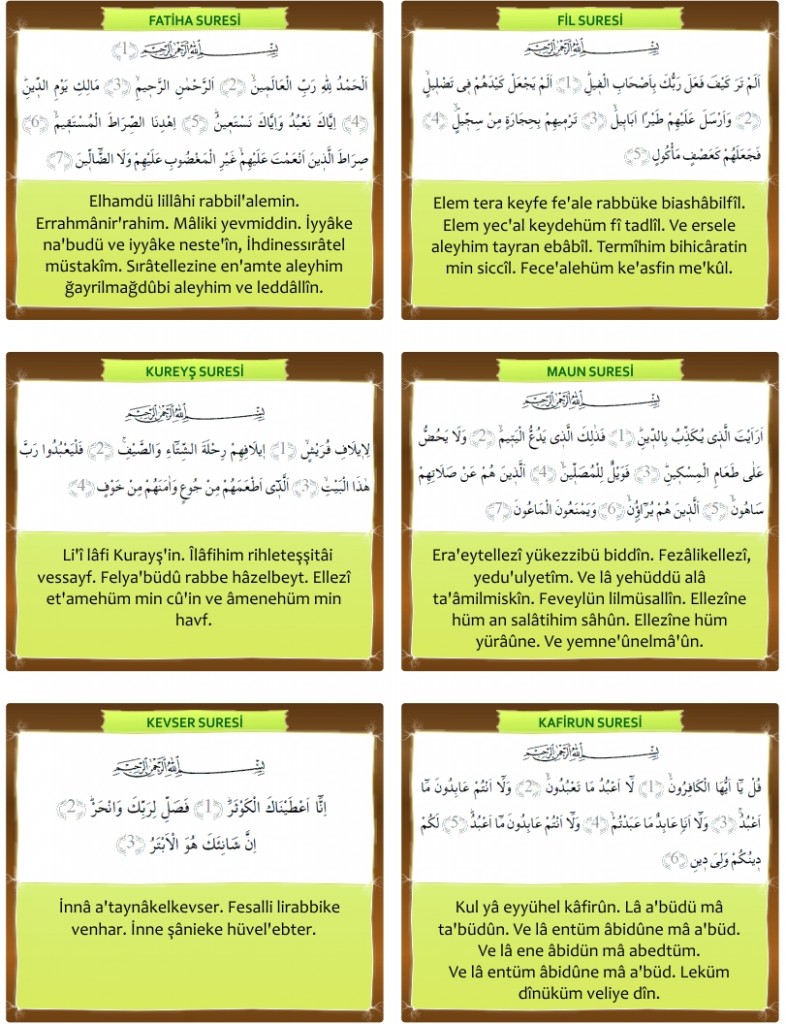 FATİHA SURESİ
بِسْمِ اللّٰهِ الرَّحْمٰنِ الرَّحِيمِ ﴿1﴾
اَلْحَمْدُ لِلّٰهِ رَبِّ الْعَالَمِينَۙ ﴿2﴾ اَلرَّحْمٰنِ الرَّحِيمِۙ ﴿3﴾ مَالِكِ يَوْمِ الدِّينِۜ
﴿4﴾ اِيَّاكَ نَعْبُدُ وَاِيَّاكَ نَسْتَعِينُۜ ﴿5﴾ اِهْدِنَا الصِّرَاطَ الْمُسْتَقِيمَۙ ﴿6﴾
صِرَاطَ الَّذِينَ اَنْعَمْتَ عَلَيْهِمْۙ غَيْرِ الْمَغْضُوبِ عَلَيْهِمْ وَلَا الضَّٓالِّينَ ﴿7﴾
Elhamdü lillâhi rabbil'alemin.
Errahmânir'rahim. Mâliki yevmiddin. İyyâke
na'budü ve iyyâke neste'în, İhdinessırâtel
müstakîm. Sırâtellezine en'amte aleyhim
ğayrilmağdûbi aleyhim ve leddâllîn.
FİL SURESİ
بِسْمِ اللّٰهِ الرَّحْمٰنِ الرَّحِيمِ
اَلَمْ تَرَ كَيْفَ فَعَلَ رَبُّكَ بِاَصْحَابِ الْفِيلِۜ ﴿1﴾ اَلَمْ يَجْعَلْ كَيْدَهُمْ فِى تَضْلِيلٍۙ
﴿2﴾ وَاَرْسَلَ عَلَيْهِمْ طَيْرًا اَبَابِيلَۙ ﴿3﴾ تَرْمِيهِمْ بِحِجَارَةٍ مِنْ سِجِّيلٍۙ ﴿4﴾
فَجَعَلَهُمْ كَعَصْفٍ مَأْكُولٍ ﴿5﴾
Elem tera keyfe fe'ale rabbüke biashâbilfîl.
Elem yec'al keydehüm fî tadlîl. Ve ersele
aleyhim tayran ebâbîl. Termîhim bihicâratin
min siccîl. Fece'alehüm ke'asfin me'kûl.
KUREYŞ SURESİ
بِسْمِ اللّٰهِ الرَّحْمٰنِ الرَّحِيمِ
لِاِيلَافِ قُرَيْشٍۙ ﴿1﴾ اِيلَافِهِمْ رِحْلَةَ الشِّتَٓاءِ وَالصَّيْفِۚ ﴿2﴾ فَلْيَعْبُدُوا رَبَّ
هٰذَا الْبَيْتِۙ ﴿3﴾ اَلَّذِٓى اَطْعَمَهُمْ مِنْ جُوعٍ وَاٰمَنَهُمْ مِنْ خَوْفٍ ﴿4﴾
Li'î lâfi Kurayş'in. Îlâfihim rihleteşşitâi
vessayf. Felya'büdû rabbe hâzelbeyt. Ellezî
et'amehüm min cû'in ve âmenehüm min
havf.
MAUN SURESİ
بِسْمِ اللّٰهِ الرَّحْمٰنِ الرَّحِيمِ
اَرَاَيْتَ الَّذِى يُكَذِّبُ بِالدِّينِۜ ﴿1﴾ فَذٰلِكَ الَّذِى يَدُعُّ الْيَتِيمَۙ ﴿2﴾ وَلَا يَحُضُّ
عَلٰى طَعَامِ الْمِسْكِينِۜ ﴿3﴾ فَوَيْلٌ لِلْمُصَلِّينَۙ ﴿4﴾ اَلَّذِينَ هُمْ عَنْ صَلَاتِهِمْ
سَاهُونَۙ ﴿5﴾ اَلَّذِينَ هُمْ يُرَٓاؤُنَۙ ﴿6﴾ وَيَمْنَعُونَ الْمَاعُونَ ﴿7﴾
Era'eytellezî yükezzibü biddîn. Fezâlikellezî,
yedu'ulyetîm. Ve lâ yehüddü alâ
ta'âmilmiskîn. Feveylün lilmüsallîn. Ellezîne
hüm an salâtihim sâhûn. Ellezîne hüm
yürâûne. Ve yemne'ûnelmâ'ûn.
KEVSER SURESİ
بِسْمِ اللّٰهِ الرَّحْمٰنِ الرَّحِيمِ
اِنَّٓا اَعْطَيْنَاكَ الْكَوْثَرَۜ ﴿1﴾ فَصَلِّ لِرَبِّكَ وَانْحَرْۜ ﴿2﴾
اِنَّ شَانِئَكَ هُوَ الْاَبْتَرُ ﴿3﴾
İnnâ a'taynâkelkevser. Fesalli lirabbike
venhar. İnne şânieke hüvel'ebter.
KAFİRUN SURESİ
بِسْمِ اللّٰهِ الرَّحْمٰنِ الرَّحِيمِ
قُلْ يَٓا اَيُّهَا الْكَافِرُونَۙ ﴿1﴾ لَٓا اَعْبُدُ مَا تَعْبُدُونَۙ ﴿2﴾ وَلَٓا اَنْتُمْ عَابِدُونَ مَٓا
اَعْبُدُۚ ﴿3﴾ وَلَٓا اَنَا عَابِدٌ مَا عَبَدْتُمْۙ ﴿4﴾ وَلَٓا اَنْتُمْ عَابِدُونَ مَٓا اَعْبُدُۜ ﴿5﴾ لَكُمْ
دِينُكُمْ وَلِىَ دِينِ ﴿6﴾
Kul yâ eyyühel kâfirûn. Lâ a'büdü mâ
ta'büdûn. Ve lâ entüm âbidûne mâ a'büd.
Ve lâ ene âbidün mâ abedtüm.
Ve lâ entüm âbidûne mâ a'büd. Leküm
dînüküm veliye dîn.